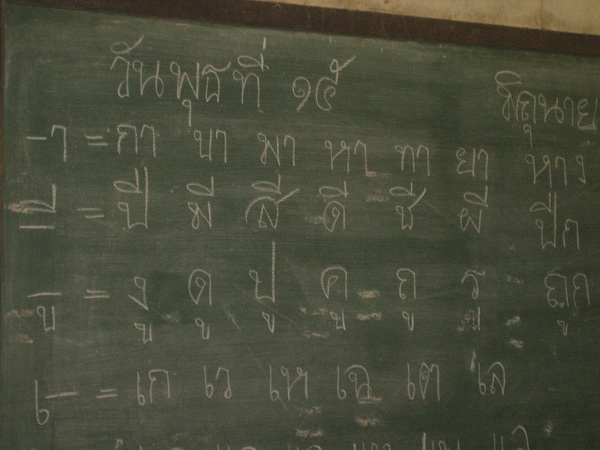 วันพุธที่ ๑๕ มิถุนาย
-า = กา ขา มา หา ทา ยา หาง
-ี = ปี มี สี ดี ชี ผี ปีก
-ู = งู ดู ปู คู ถู รู ถูก
เ- = เก เว เห เฉ เต เล